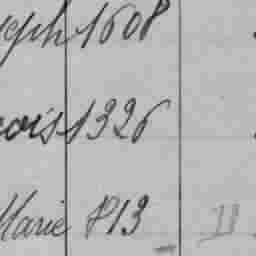 eph 1608
cois 1326
Marie 813